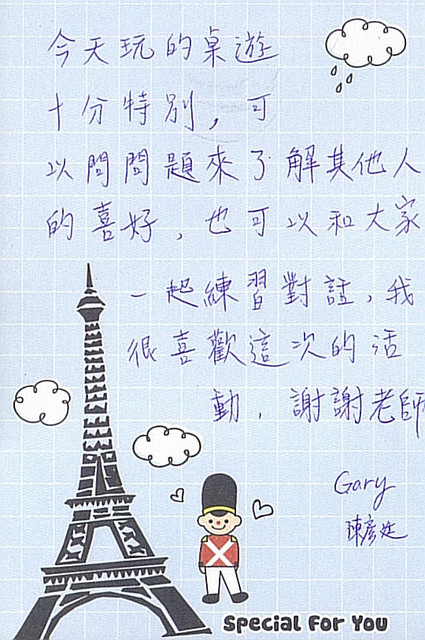 今天玩的桌遊
十分特別,可
以問問題來了解其他人
的喜好,也可以和大家
一起練習對話,我
很喜歡這次的活
動,謝謝老師
Gary
陳彥廷
Special For You